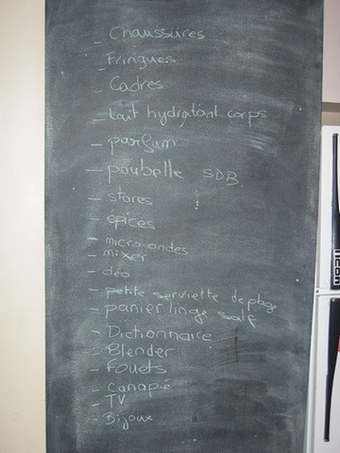 - Chaussures
- Fringues
- Cadres
- Lait hydratant corps
- parfum
- poubelle SDB
- stores
- épices
- micro-ondes
- mixer
- déo
- petite serviette de plage
- panier linge sale
- Dictionnaire
- Blender
- Fouets
- Canapé
- TV
- Bijoux